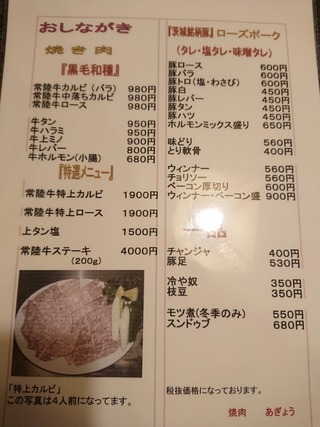 おしながき
焼き肉
『黒毛和種』
常陸牛カルビ(バラ) 980円
常陸牛中落ちカルビ 980円
常陸牛ロース 980円
牛タン 950円
牛ハラミ 950円
牛上ミノ 900円
牛レバー 800円
牛ホルモン(小腸) 680円
『特選メニュー』
常陸牛特上カルビ 1900円
常陸牛特上ロース 1900円
上タン塩 1500円
常陸牛ステーキ 4000円
(200g)
「特上カルビ」
この写真は4人前になってます。
『茨城銘柄豚』ローズポーク
(タレ・塩タレ・味噌タレ)
豚ロース 600円
豚バラ 600円
豚トロ(塩・わさび) 600円
豚白 450円
豚レバー 450円
豚タン 450円
豚ハツ 450円
ホルモンミックス盛り 650円
味どり 560円
とり軟骨 400円
ウィンナー 560円
チョリソー 560円
ベーコン厚切り 600円
ウィンナー・ベーコン盛 900円
一品
チャンジャ 400円
豚足 530円
冷や奴 350円
枝豆 350円
モツ煮(冬季のみ) 550円
スンドゥブ 680円
税抜価格になっております。
焼肉 あぎょう